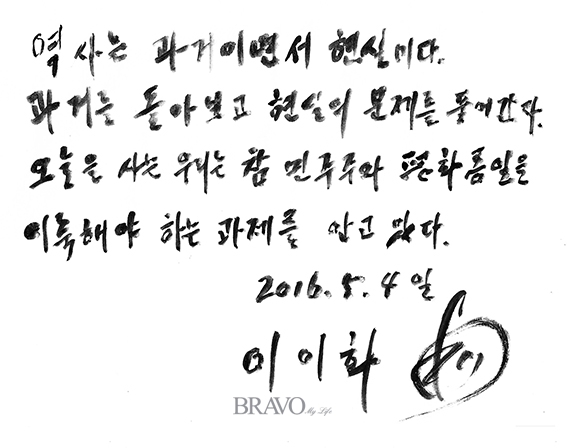 역사는 과거이면서 현실이다.
과거를 돌아보고 현실의 문제를 풀어간다.
오늘을 사는 우리는 참 민주주와 평화통일을
이룩해야 하는 과제를 안고 있다.
2016. 5. 4 일
이이화
BRAVO My Life